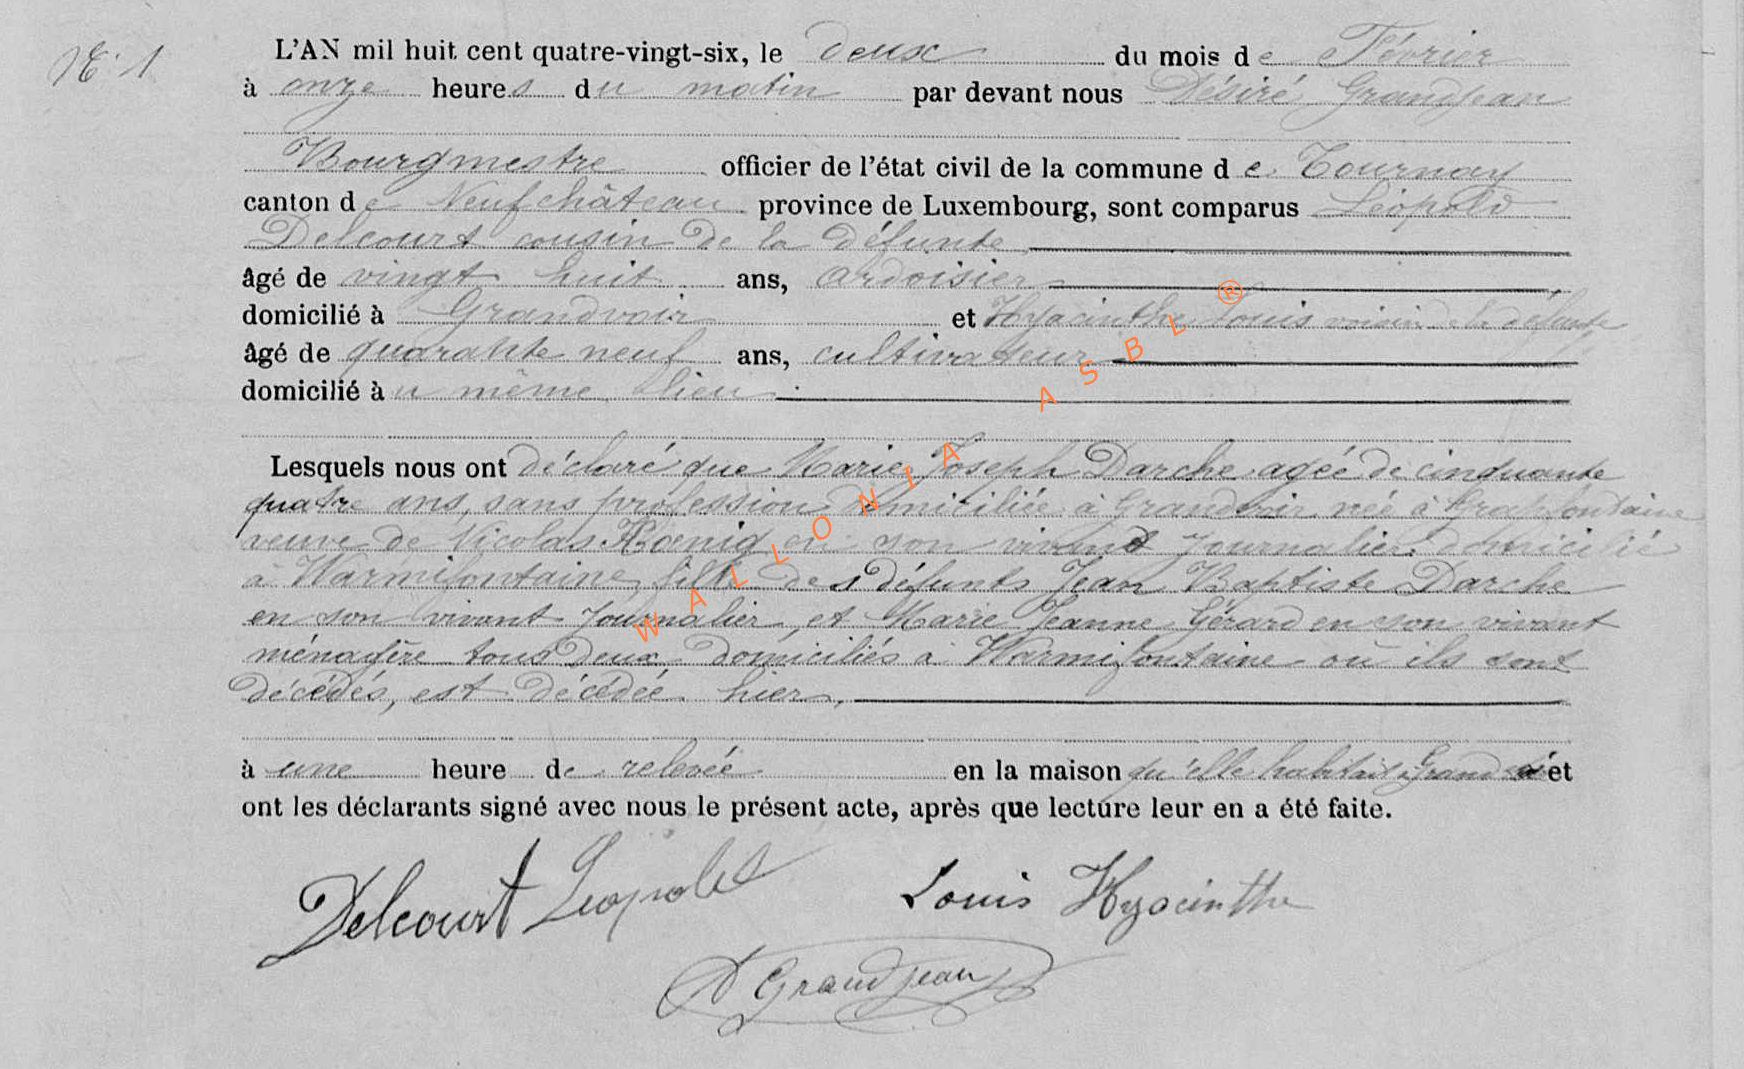 N° 1
L'AN mil huit cent quatre-vingt-six, le deux du mois de Février
à onze heures du matin par devant nous Désiré Grandjean
Bourgmestre officier de l'état civil de la commune de Tournay
canton de Neufchâteau province de Luxembourg, sont comparus Léopold
Delcourt cousin de la défunte
âgé de vingt huit ans, ardoisier
domicilié à Grandvoir et Hyacinthe Louis voisin de la défunte
âgé de quarante neuf ans, cultivateur
domicilié à u même lieu
Lesquels nous ont déclaré que Marie Joseph Darche agée de cinquante
quatre ans, sans profession domiciliée à Grandvoir née à Grapfontaine
veuve de Nicolas Rœnig en son vivant journalier domicilié
à Warmifontaine, fille des défunts Jean Baptiste Darche
en son vivant journalier, et Marie Jeanne Gérard en son vivant
ménagère tous deux domiciliés à Warmifontaine où ils sont
décédés, est décédée hier,
à une heure de relevée en la maison qu'elle habitait à Grandvoir et
ont les déclarants signé avec nous le présent acte, après que lecture leur en a été faite.
Delcourt Léopold Louis Hyacinthe
D Grandjean
WALLONIA ASBL ®